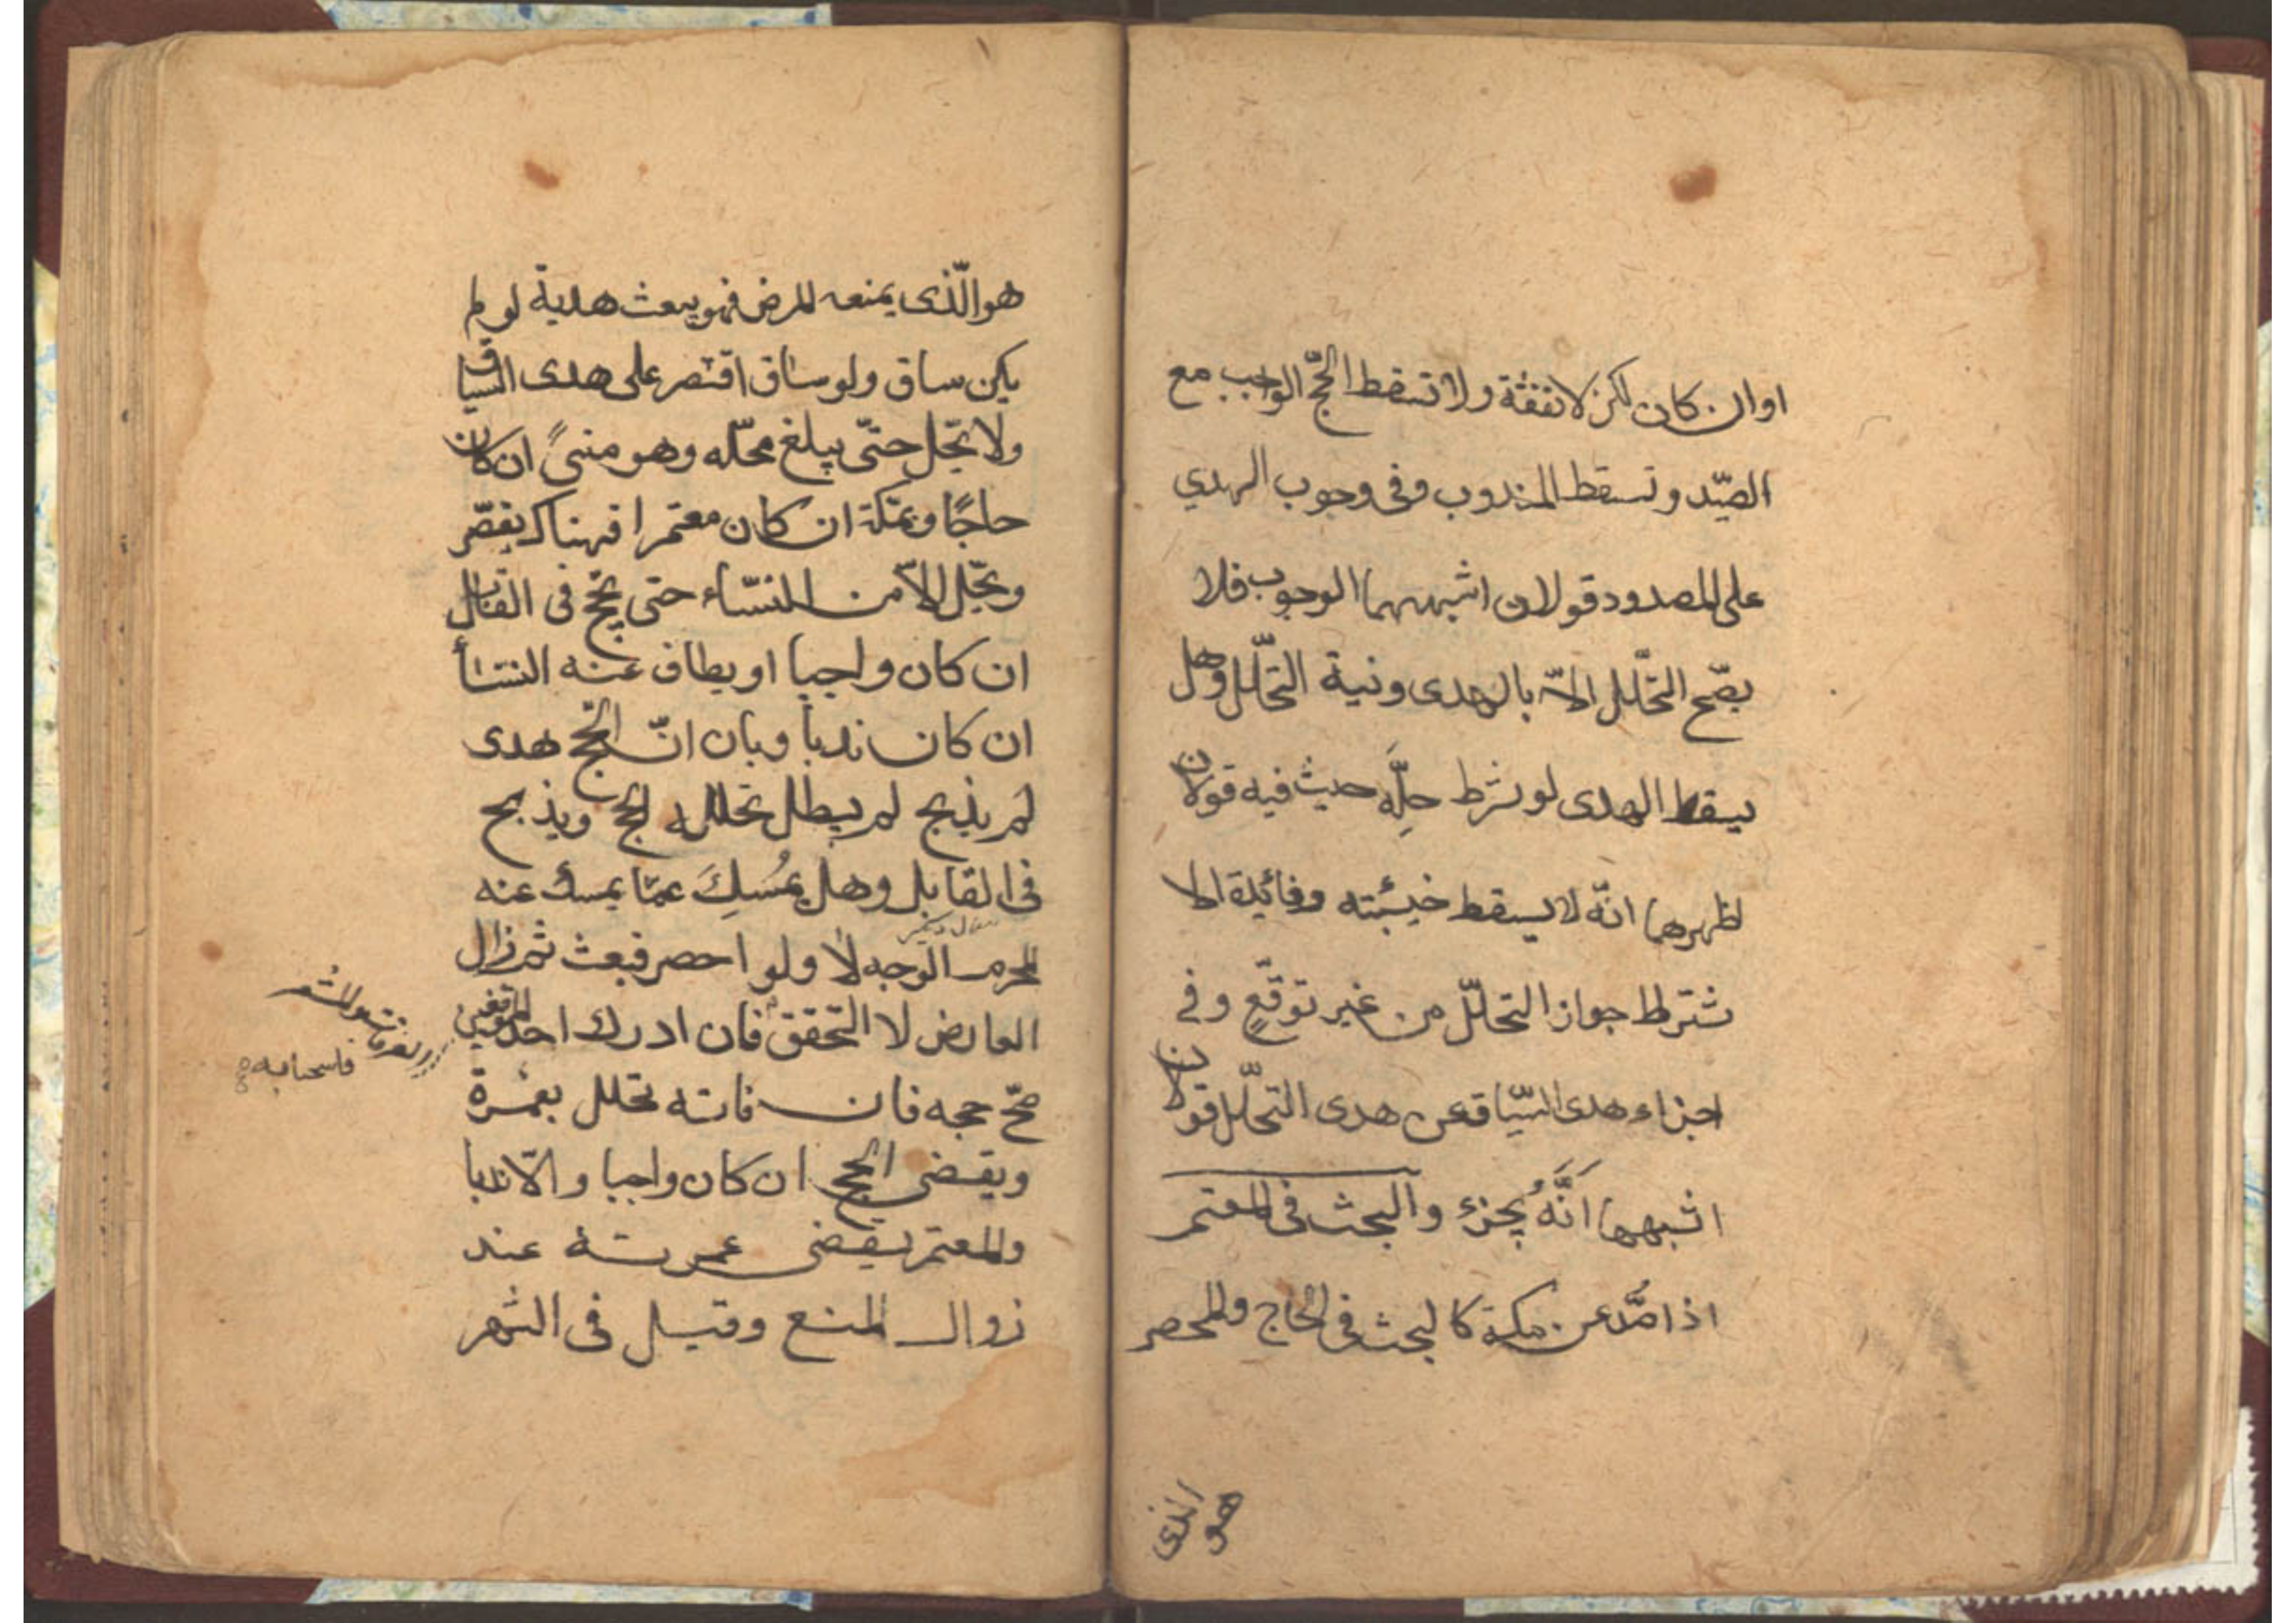 او ان كان لكن لا نفقة ولا تسقط الحجّ الواجب مع
الصّد وتسقط المندوب وفى وجوب الهدي
على المصدود قولان اشبههما الوجوب فلا
يصّح التحّلل الّا بالهدى ونية التحّلل وهل
يسقط الهدى لو شرط حلَّه حيث فيه قولان
اظهرهما انّه لا يسقط وفائدة الا
شترط جواز التحلّل من غير توقّعٍ وفي
اجزاء هدى السّياق عن هدى التحّلل قولان
اشبههما انَّهُ يجزء والبحث فى المعتمر
اذا صُّد عن مكة كالبحث فى الحاج والمحصر
هو الذى
هو الّذى يمنعه المرض فهو يبعث هدية لو لم
يكن ساق ولو ساق اقتصر على هدى السياق
ولا يحّل حتّى يبلغ محّله وهو منىً ان كان
حاجًا وبمكة ان كان معتمرا فهناك يقصّر
ويحّل الّا من النسّاء حتى يحّج فى القابل
ان كان واجبا او يطاف عنه النسأ
ان كان ندبا وبان انّ الحج هدى
لم يذبح لم يبطل تحلله الحج ويذبح
فى القابل وهل يمُسِكَ عمّا يمسك عنه
المحرم الوجه لا ولو احصر فبعث ثم زال
العارض لا التحقق فان ادرك احد الموقفين
صّح حجه فان فاته تحلل بعمرة
ويقضى الحج ان كان واجبا والّا ندبا
والمعتمر يقضى عمرته عند
زوال المنع وقيل فى الشهر